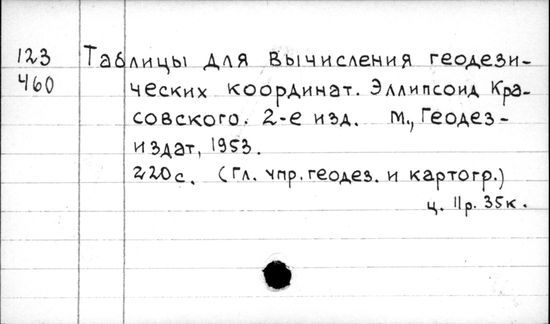 123 Таблицы для вычисления геодези-
460 ческих координат. Эллипсоид Кра-
совского. 2-е изд. М., Геодез-
издат, 1953.
220с. (Гл. упр. геодез. и картогр.)
ц. 11р. 35к.